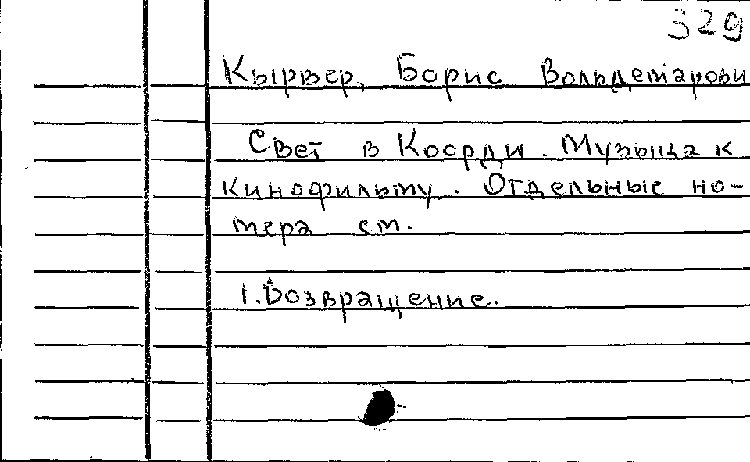 329
Кырвер, Борис Вольдемарови
Свет в Коорди. Музыка к
кинофильму. Отдельные но-
мера см.
1. Возвращение.